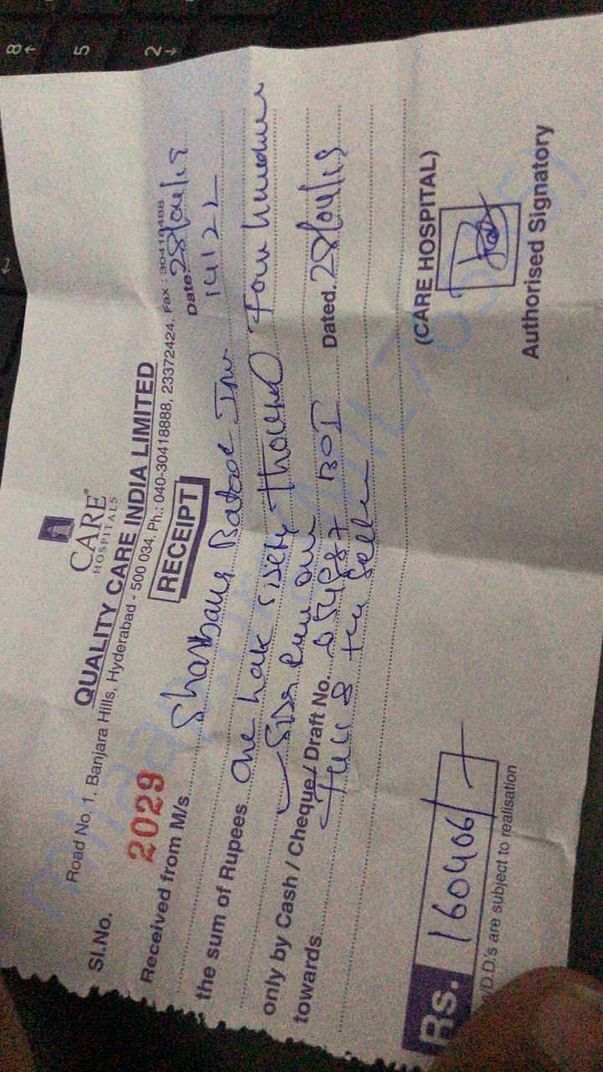 CARE
HOSPITALS
QUALITY CARE INDIA LIMITED
Road No. 1, Banjara Hills, Hyderabad - 500 034. Ph.: 040-30418888, 23372424. Fax : 30418488
Sl.No. 2029
RECEIPT
Date 28/04/19
14122
Received from M/s
the sum of Rupees One lakh sixty Thousand Four hundred
only by Cash / Cheque / Draft No. BOI Dated. 28/04/19
towards
(CARE HOSPITAL)
Rs. 160406/-
/D.D.'s are subject to realisation
Authorised Signatory
8
5
2